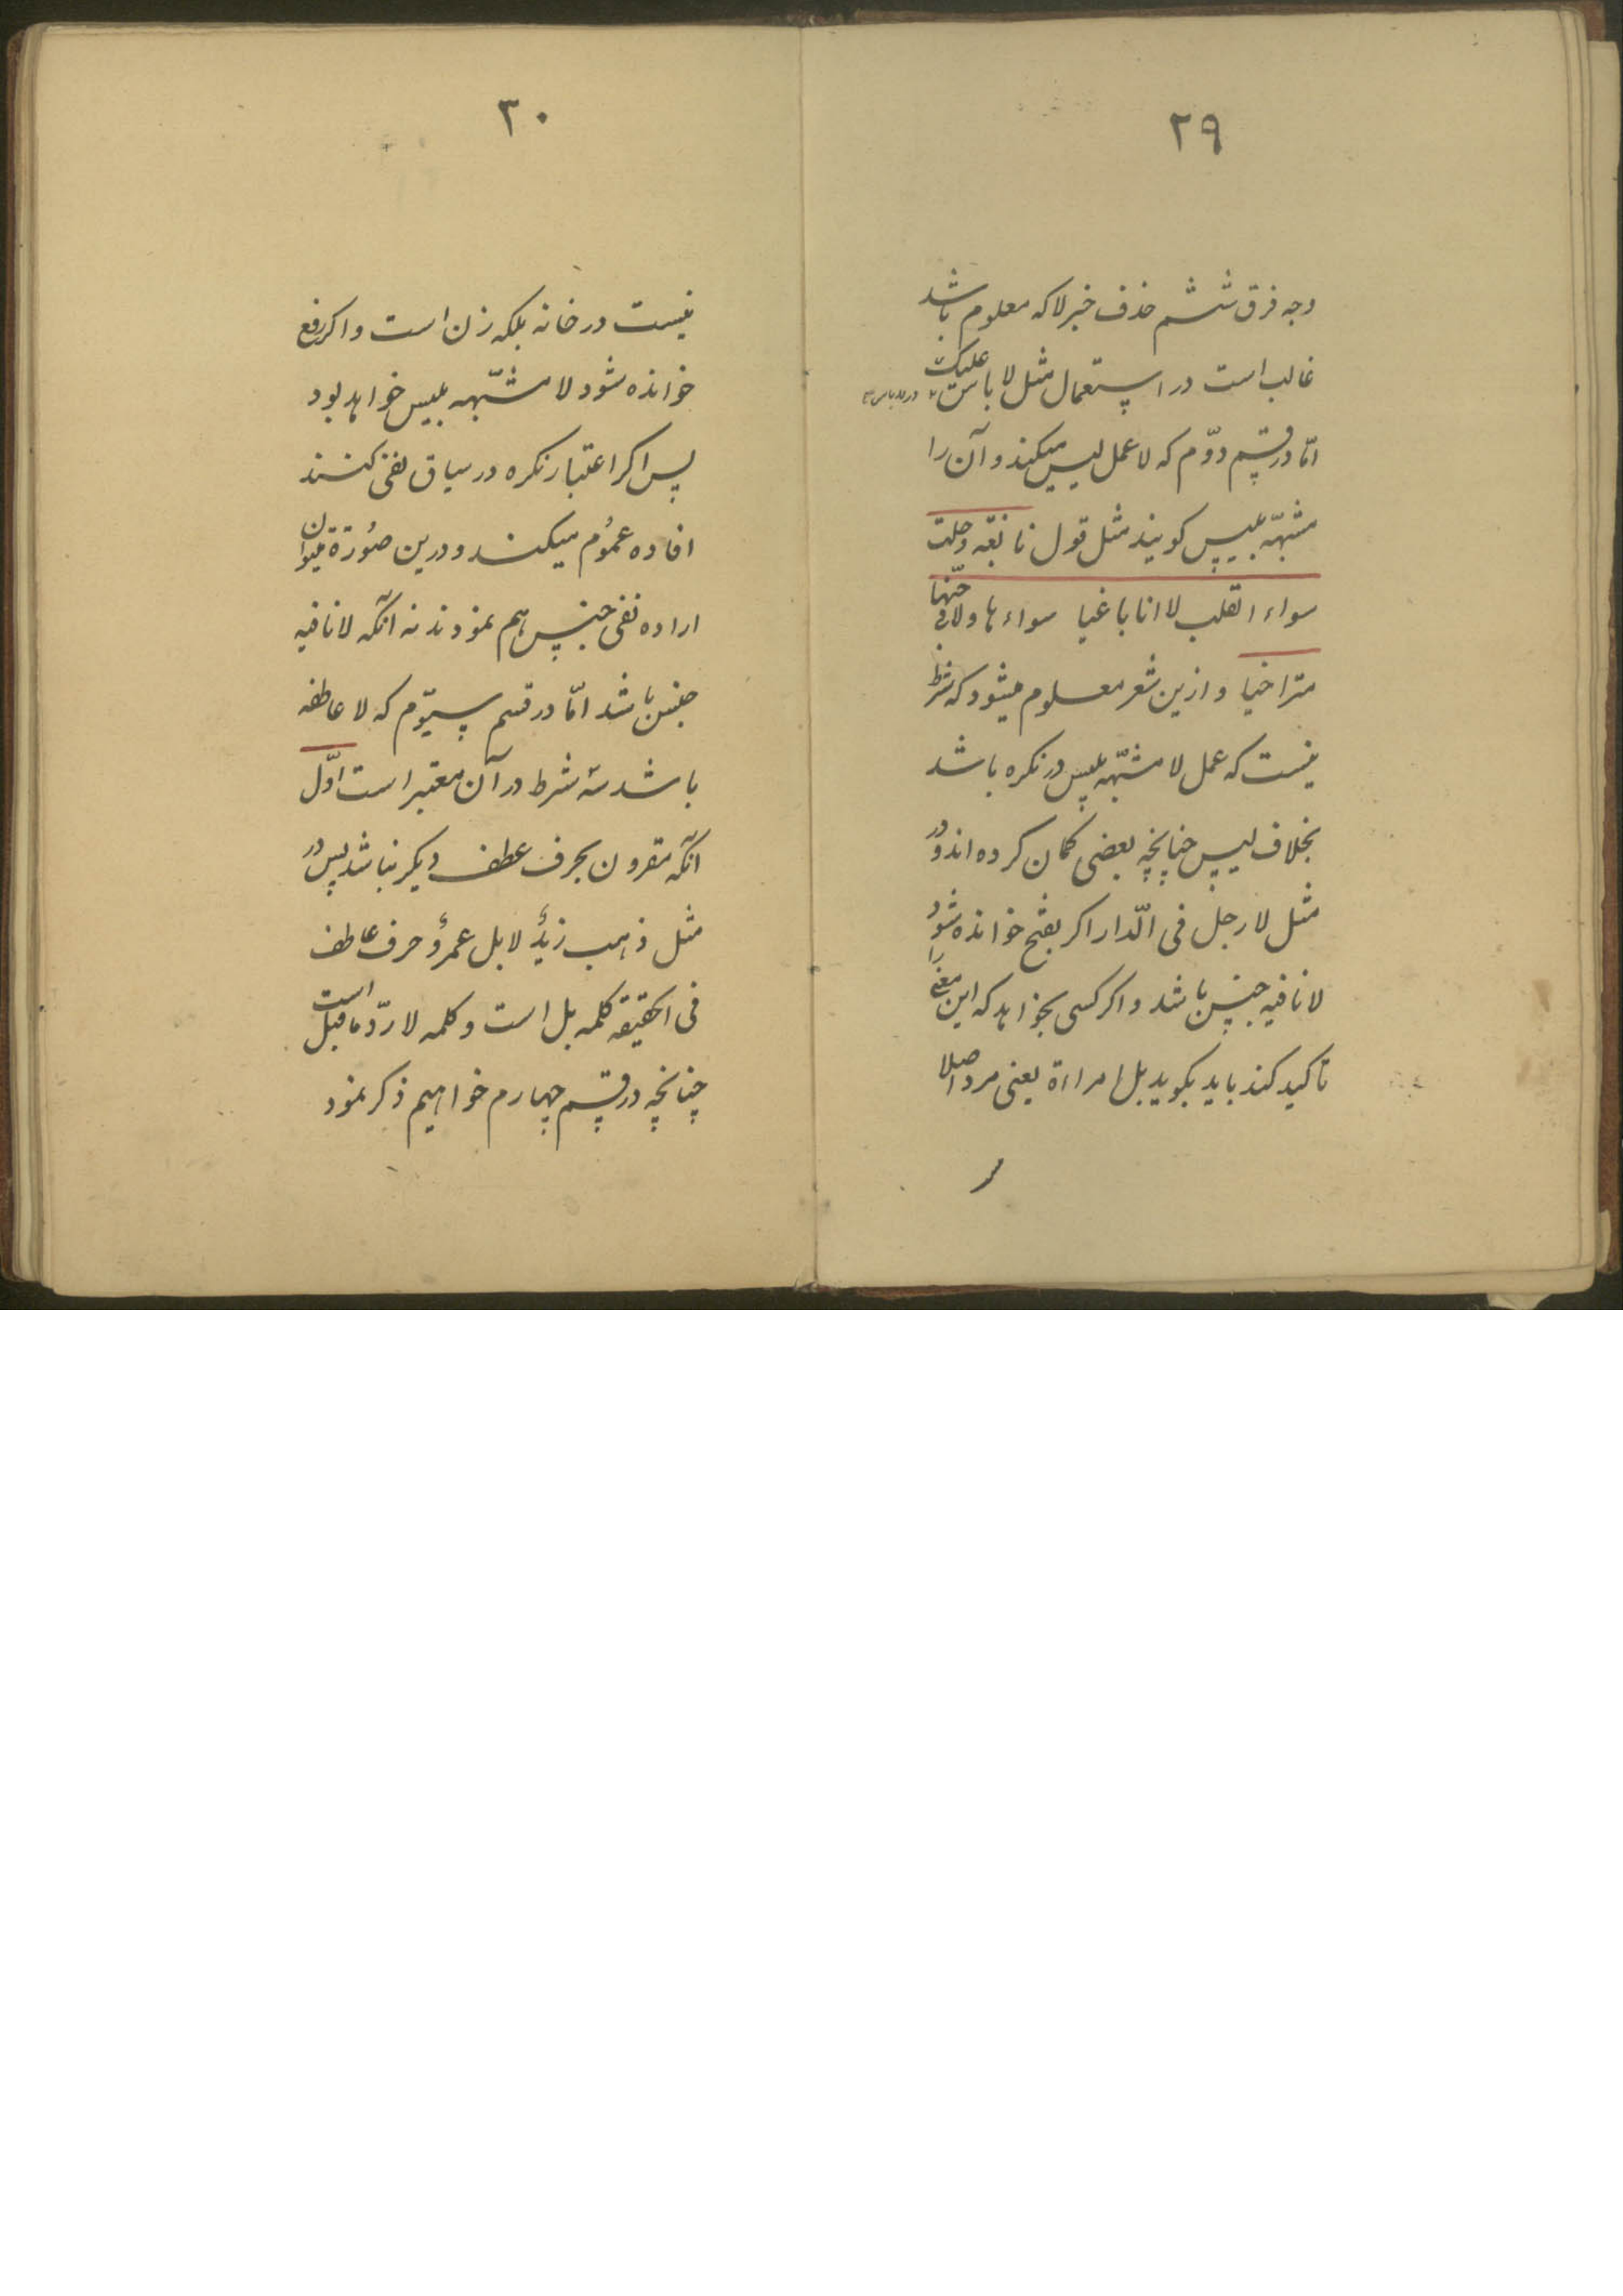 ۲۹
وجه فرق ششم حذف خبر لا که معلوم باشد
غالب است در استعمال مثل لا باس علیک
امّا در قسم دوّم که لا عمل لیس میکند و آن را
مشبهّه بلیس کویند مثل قول نابغه وحلت
سواء القلب لا انا باغیا سواءها ولا فی حبّها
متراخیا و ازین شعر معلوم میشود که شرط
نیست که عمل لا مشبّهه بلیس در نکره باشد
بخلاف لیس چنانچه بعضی کمان کرده اند و در
مثل لا رجل فی الدّار اکر بفتح خوانده شود
لا نافیه جنس باشد و اکر کسی بخواهد که این معنی را
تاکید کند باید بکوید بل امراءة یعنی مرد اصلا
۳۰
نیست در خانه بلکه زن است و اکر رفع
خوانده شود لا مشبّهه بلیس خواهد بود
پس اکر اعتبار نکره در سیاق نفی کنند
افاده عمُوم میکند و درین صُورة میتوان
اراده نفی جنس هم نمود نه آنکه لا نافیه
جنس باشد امّا در قسم سیّوم که لا عاطفه
باشد سه شرط در آن معتبر است اوّل
آنکه مقرون بحرف عطف دیکر نباشد پس در
مثل ذهب زیدٌ لا بل عمروٌ حرف عاطف
فی الحقیقه کلمه بل است و کلمه لا ردّ ماقبل است
چنانچه در قسم چهارم خواهیم ذکر نمود